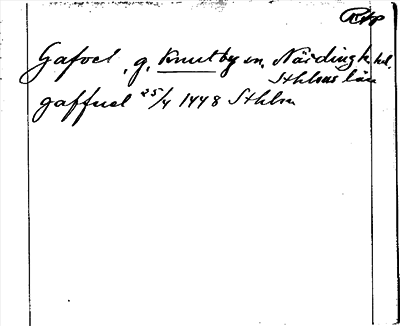 Gafvel, g. Knutby sn. Närdinghr. hd.
Sthlms län
gaffuel 25/4 1448 Sthlm